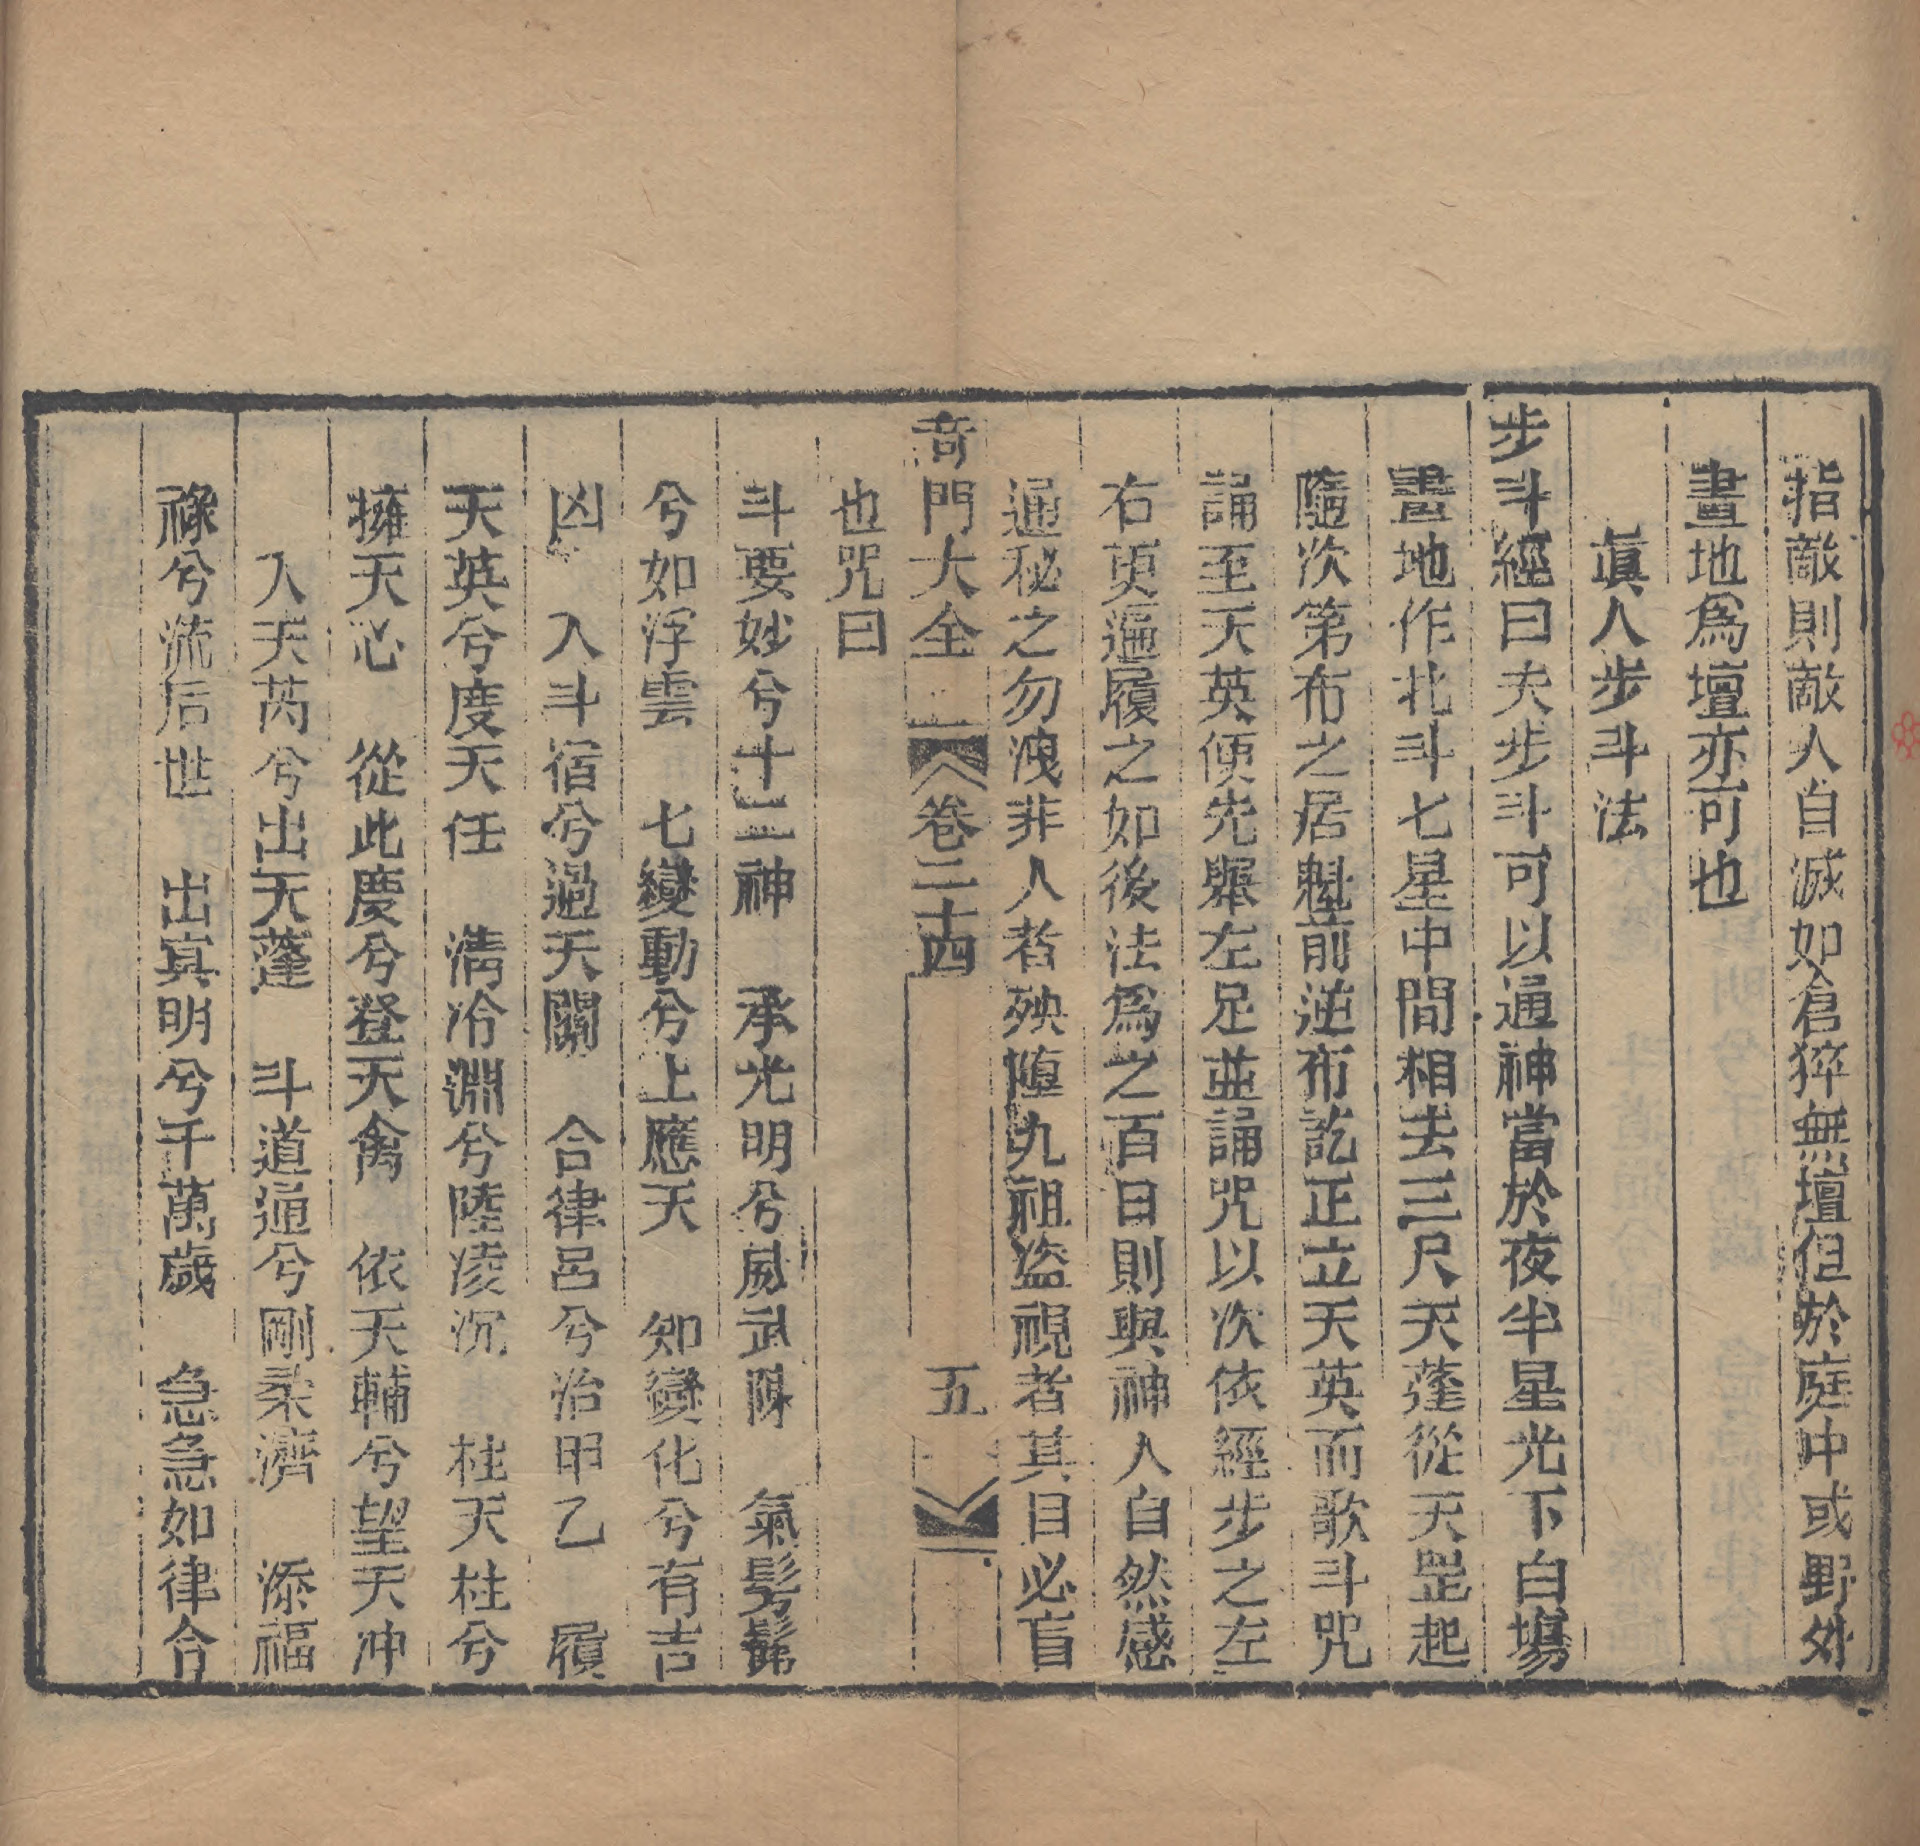 指敵則敵人自滅如倉猝無壇但於庭中或野外
畫地爲壇亦可也
眞人步斗法
步斗經曰夫步斗可以通神當於夜半星光下白塲
畫地作北斗七星中間相去三尺天蓬從天罡起
隨次第布之居魁前逆布訖正立天英而歌斗咒
誦至天英便先舉左足並誦咒以次依經步之左
右更遍履之如後法爲之百日則與神人自然感
通秘之勿洩非人者殃墮九祖盜視者其目必盲
奇門大全 卷二十四 五
也咒曰
斗要妙兮十二神 承光明兮威武陳 氣髣髴
兮如浮雲 七變動兮上應天 知變化兮有吉
凶 入斗宿兮過天關 合律呂兮治甲乙 履
天英兮度天任 淸冷淵兮陸凌沉 柱天柱兮
擁天心 從此慶兮登天禽 依天輔兮望天冲
入天芮兮出天蓬 斗道通兮剛柔濟 添福
祿兮流后世 出冥明兮千萬歲 急急如律令